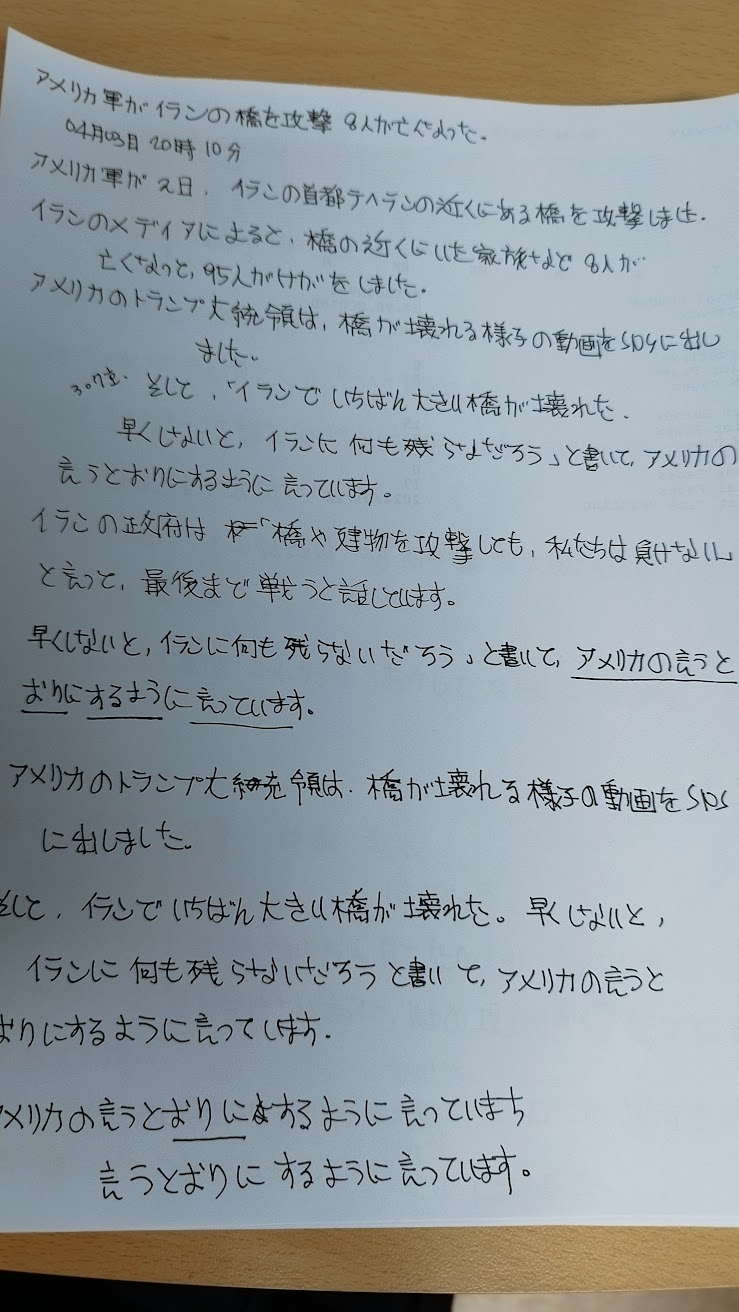 アメリカ軍がイランの橋を攻撃 8人が亡くなった.
04月03日 20時10分
アメリカ軍が2日、イランの首都テヘランの近くにある橋を攻撃しました.
イランのメディアによると、橋の近くにいた家族など8人が
亡くなって,95人がけがをしました.
アメリカのトランプ大統領は、橋が壊れる様子の動画をSNSに出し
ました.
そして、「イランでいちばん大きい橋が壊れた.
早くしないと、イランに何も残らないだろう」と書いて、アメリカの
言うとおりにするように言っています。
イランの政府は「橋や建物を攻撃しても、私たちは負けない」
と言って、最後まで戦うと話しています。
早くしないと,イランに何も残らないだろう」と書いて,アメリカの言うと
おりにするように言っています。
アメリカのトランプ大統領は、橋が壊れる様子の動画をSNS
に出しました。
そして、イランでいちばん大きい橋が壊れた。早くしないと,
イランに何も残らないだろうと書いて,アメリカの言うと
おりにするように言ってします.
アメリカの言うとおりにするように言っていまち
言うとおりにするように言っています。